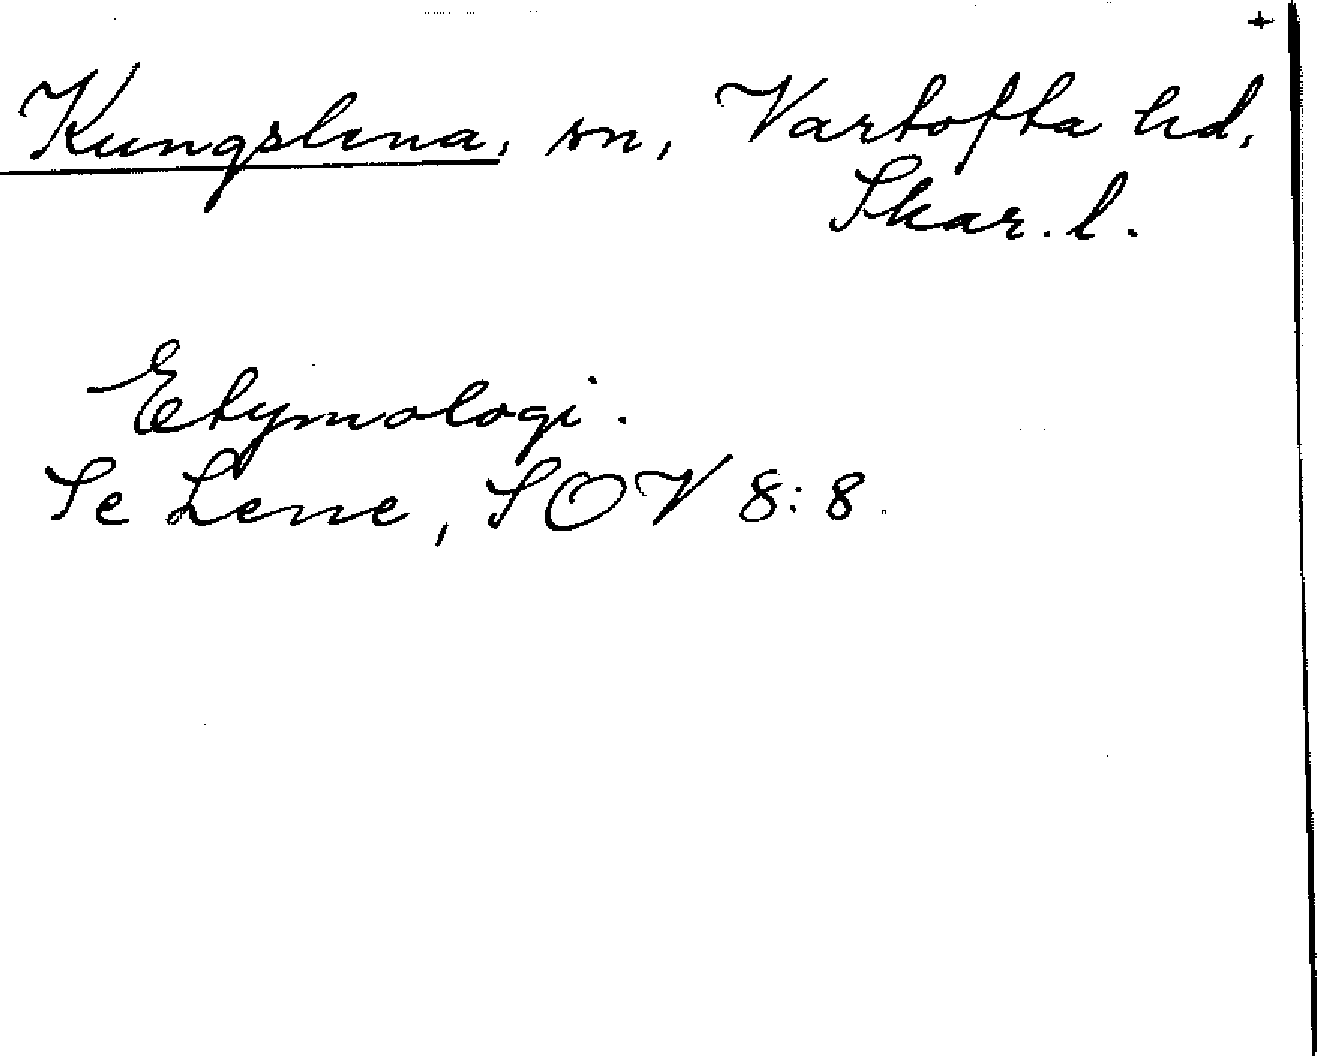 Kungslena, sn, Vartofta hd,
Skar. l.
Etymologi.
Se Lene, SOV 8:8.